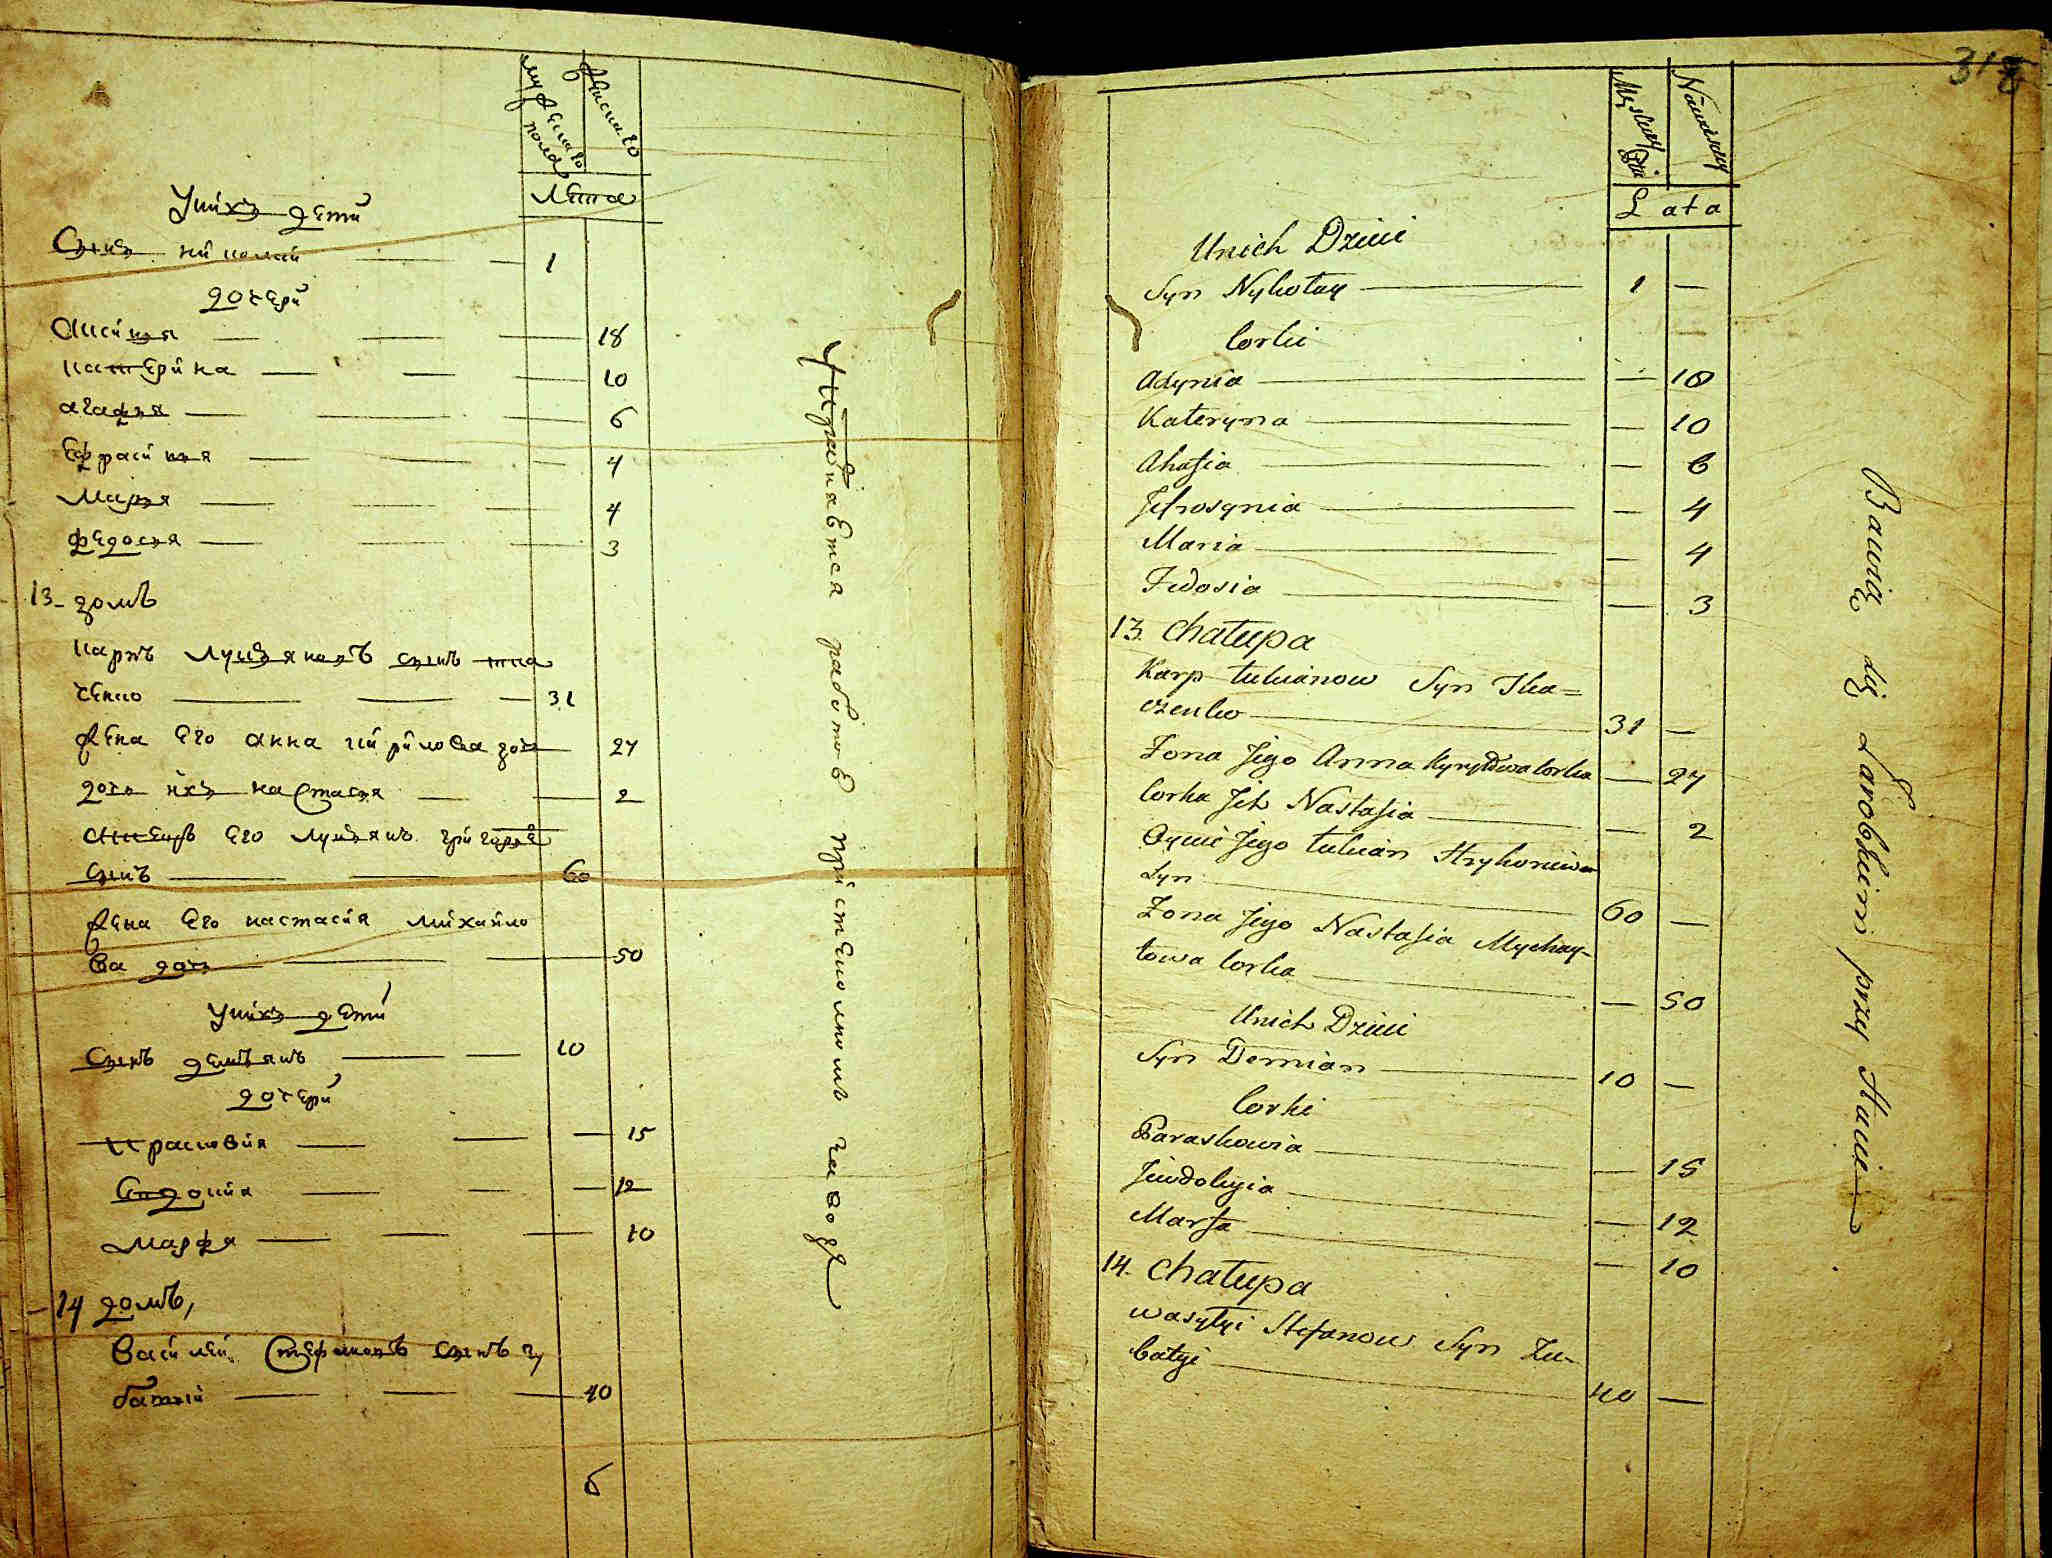 мужескаго пола
женскаго
лета
Уних дети
Сынъ николай 1
дочери
Аксиния 18
катерина 10
агафия 6
Ефросиния 4
Мария 4
федосия 3
13 домъ
карпъ лукяновъ сынъ тка
ченко 31
жена его анна кирилова дочь 27
дочь ихъ настасия 2
отецъ его лукянъ григориевъ
сынъ 60
жена его настасия михайло
ва дочь 50
Уних дети
сынъ демянъ 10
дочери
Прасковия 15
Евдокия 12
марфа 10
14 домъ,
василий Стефановъ сынъ зу
батий 40
б
Упражняется работою при
31
Męskiey Płci
Niewieskiey
Lata
Unich Dzieci
Syn Nykołay 1 —
Corki
Axynia — 18
Kateryna — 10
Ahafia — 6
Jefrosynia — 4
Maria — 4
Fedosia — 3
13. Chałupa
Karp Łukianow Syn Tka=
czenko 31 —
Zona Jego Anna Kyryłowa Corka — 27
Corka Jch Nastasia — 2
Oyciec Jego Łukian Hryhoriew
Syn 60 —
Zona Jego Nastasia Mychay-
łowa Corka — 50
Unich Dzieci
Syn Demian 10 —
Corki
Paraskowia — 15
Jewdokyia — 12
Marfa — 10
14. Chałupa
Wasylyi Stefanow Syn Zu-
batyi 40 —
Bawią się Zarobkiem przy Hucie